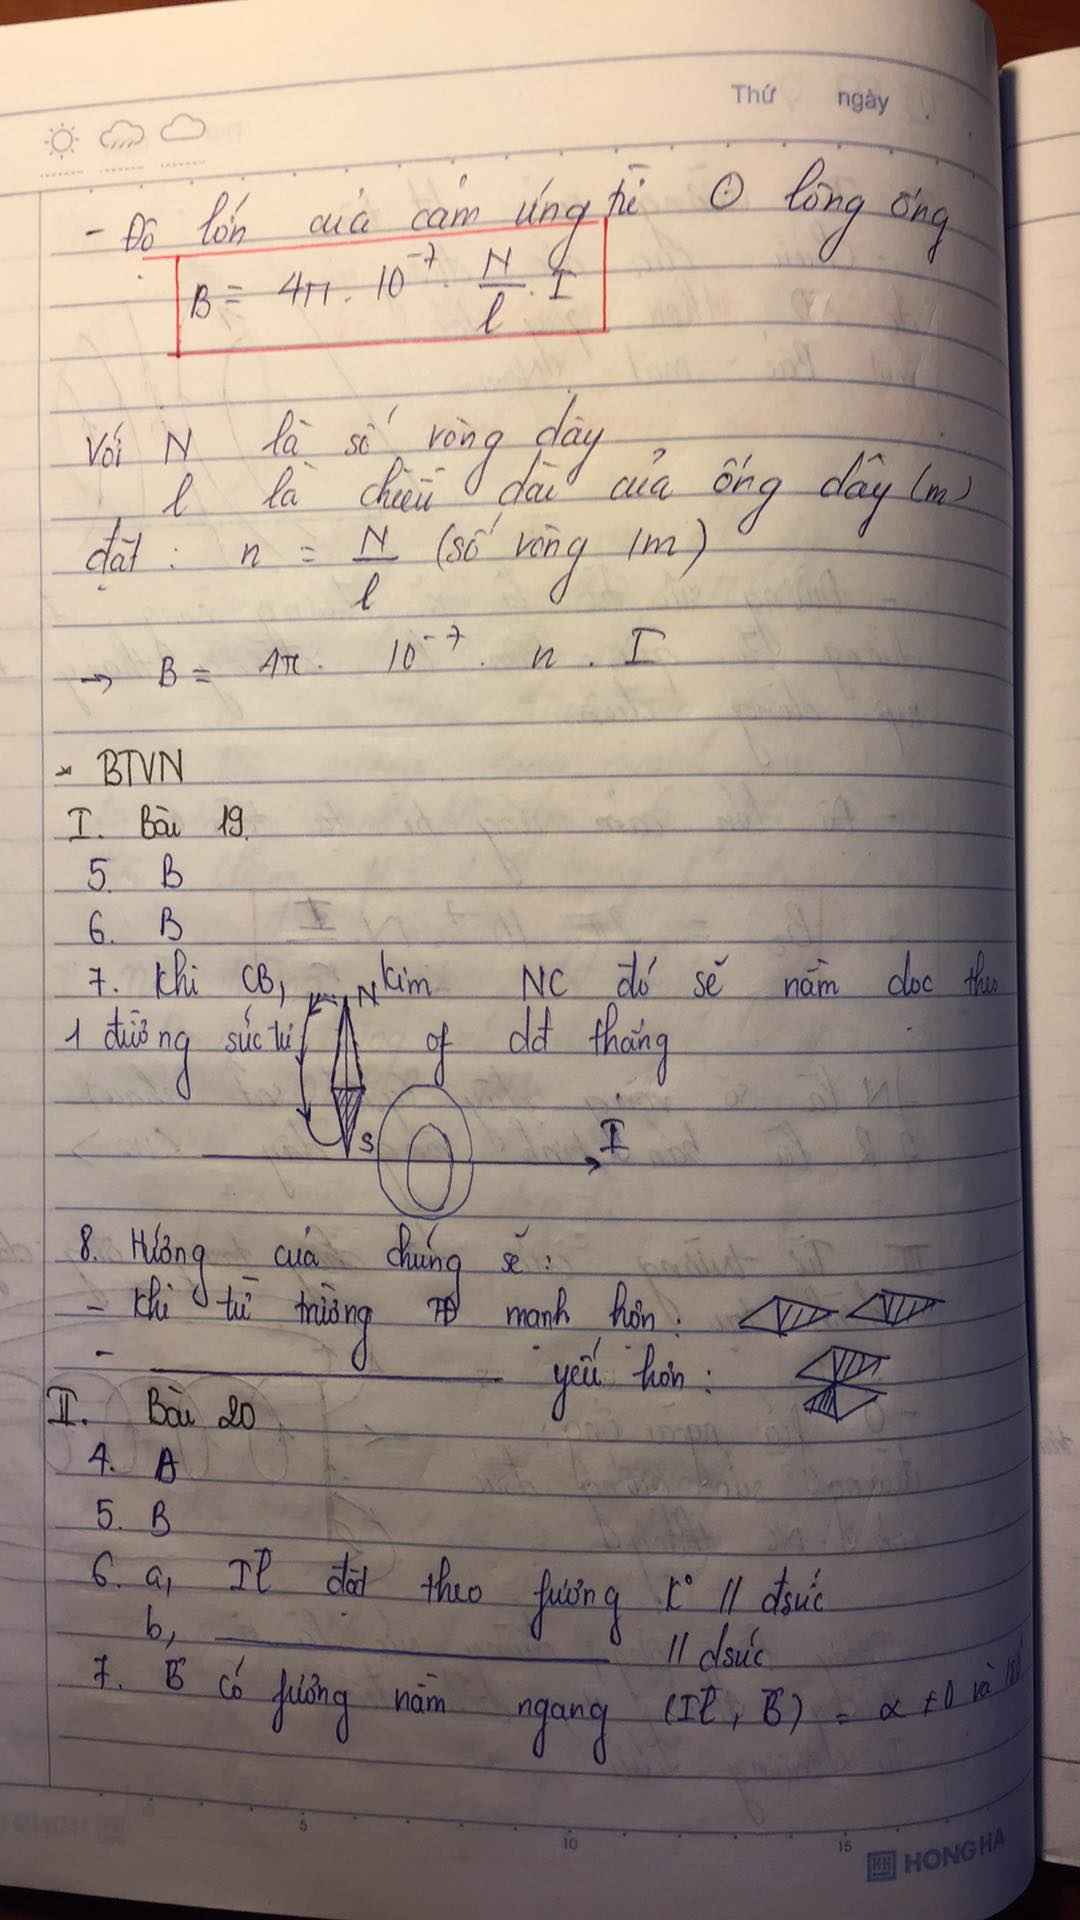 Thứ ngày
- Độ lớn của cảm ứng từ ⊙ lòng ống
B = 4π. 10⁻⁷. N/l . I
Với N là số vòng dây
l là chiều dài của ống dây (m)
đặt : n = N/l (số vòng /m)
→ B = 4π. 10⁻⁷. n . I
* BTVN
I. Bài 19.
5. B
6. B
7. Khi CB, kim NC đó sẽ nằm dọc theo
N
1 đường sức từ of dđ thẳng
S
I
8. Hướng của chúng sẽ :
- Khi từ trường TĐ mạnh hơn :
- yếu hơn :
II. Bài 20
4. A
5. B
6. a, Il đặt theo fương k° // đsức
b, // đsức
7. B có fương nằm ngang (Il, B) = α ≠ 0 và
5 10 15
HH HONG HA